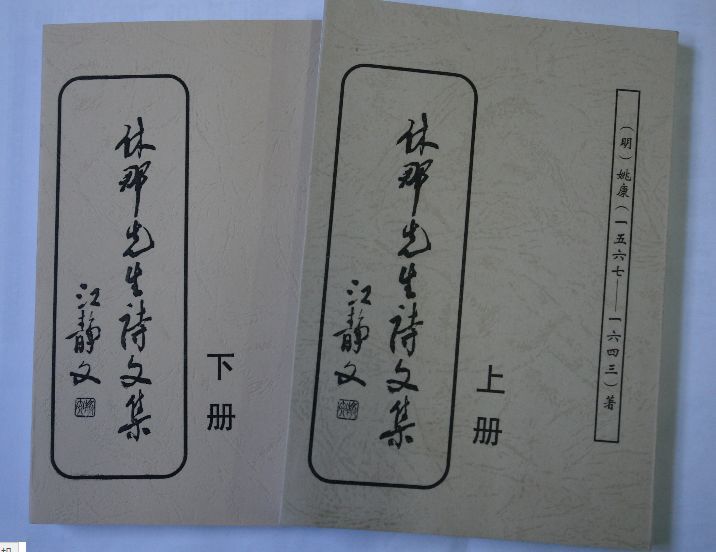 休那先生詩文集
江靜文
下册
休那先生詩文集
江靜文
上册
（明）姚康（一五六七——一六四三）著